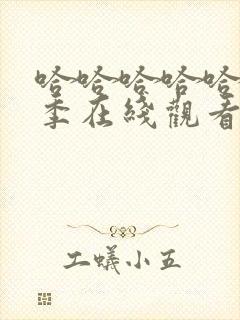 哈哈哈哈哈
季在綫觀看
工蟻小五